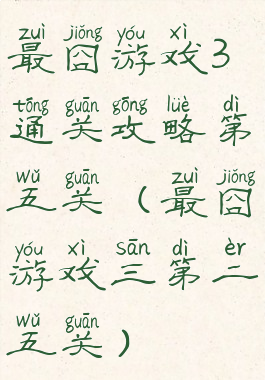 zuì jiǒng yóu xì
最囧游戏3
tōng guān gōng lüè dì
通关攻略第
wǔ guān zuì jiǒng
五关（最囧
yóu xì sān dì èr
游戏三第二
wǔ guān
五关）